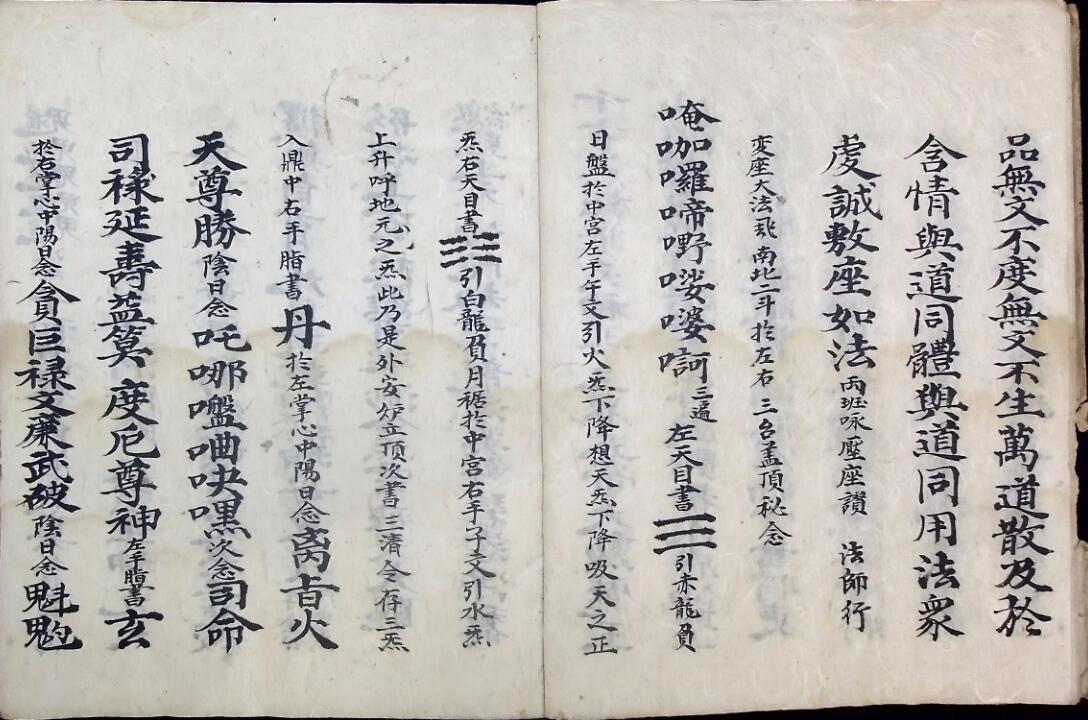 品無文不度無文不生萬道散及於
含情與道同體與道同用法眾
虔誠敷座如法兩班咏壓座讃 法師行
变座大法飛南北二斗於左右 三台盖頂秘念
唵咖囉啼嘢㗼㗑㖿三遍左天目書☲引赤龍負
日盤於中宮左手午文引火炁下降想天炁下降吸天之正
炁右天目書☵引白龍負月裾於中宮右手子文引水炁
上升呼地元之炁此乃是外安炉立頂次書三清令存三炁
入鼎中右手脂書丹於左掌心中陽日念离㫖火
天尊勝陰日念吒哪嚂㖆吷嘿次念司命
司禄延壽益筭度厄尊神左手脂書玄
於右掌心中陽日念貪巨禄文廉武破陰日念魁𩲃